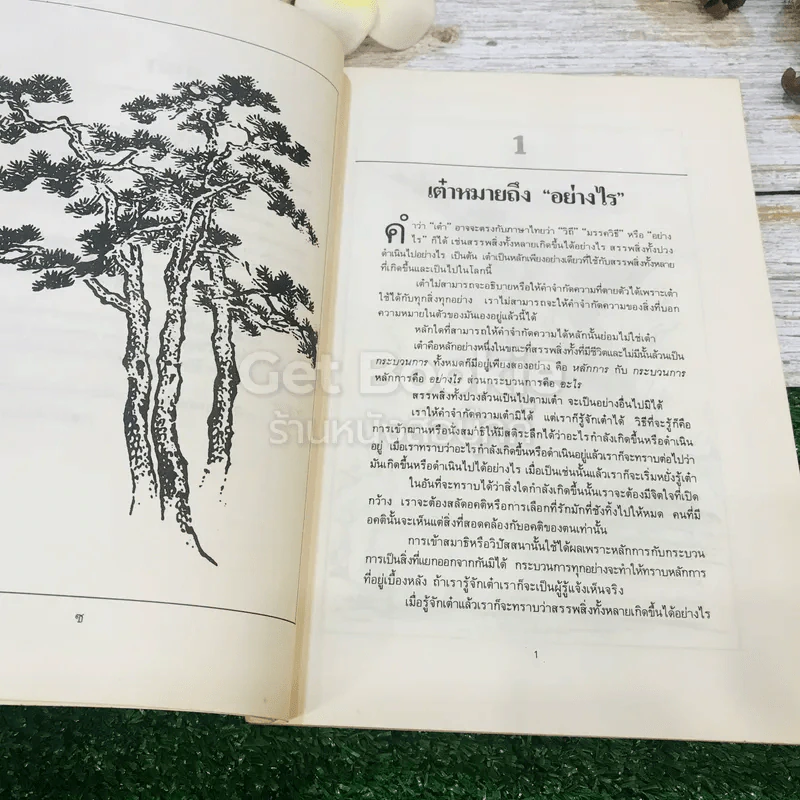 ซ
1
เต๋าหมายถึง “อย่างไร”
คำว่า “เต๋า” อาจจะตรงกับภาษาไทยว่า “วิถี” “มรรควิธี” หรือ “อย่าง
ไร” ก็ได้ เช่นสรรพสิ่งทั้งหลายเกิดขึ้นได้อย่างไร สรรพสิ่งทั้งปวง
ดำเนินไปอย่างไร เป็นต้น เต๋าเป็นหลักเพียงอย่างเดียวที่ใช้กับสรรพสิ่งทั้งหลาย
ที่เกิดขึ้นและเป็นไปในโลกนี้
เต๋าไม่สามารถจะอธิบายหรือให้คำจำกัดความที่ตายตัวได้เพราะเต๋า
ใช้ได้กับทุกสิ่งทุกอย่าง เราไม่สามารถจะให้คำจำกัดความของสิ่งที่บอก
ความหมายในตัวของมันเองอยู่แล้วนี้ได้
หลักใดที่สามารถให้คำจำกัดความได้หลักนั้นย่อมไม่ใช่เต๋า
เต๋าคือหลักอย่างหนึ่งในขณะที่สรรพสิ่งทั้งที่มีชีวิตและไม่มีนั้นล้วนเป็น
กระบวนการ ทั้งหมดก็มีอยู่เพียงสองอย่าง คือ หลักการ กับ กระบวนการ
หลักการคือ อย่างไร ส่วนกระบวนการคือ อะไร
สรรพสิ่งทั้งปวงล้วนเป็นไปตามเต๋า จะเป็นอย่างอื่นไปมิได้
เราให้คำจำกัดความเต๋ามิได้ แต่เราก็รู้จักเต๋าได้ วิธีที่จะรู้ก็คือ
การเข้าฌานหรือนั่งสมาธิให้มีสติระลึกได้ว่าอะไรกำลังเกิดขึ้นหรือดำเนิน
อยู่ เมื่อเราทราบว่าอะไรกำลังเกิดขึ้นหรือดำเนินอยู่แล้วเราก็จะทราบต่อไปว่า
มันเกิดขึ้นหรือดำเนินไปได้อย่างไร เมื่อเป็นเช่นนั้นแล้วเราก็จะเริ่มหยั่งรู้เต๋า
ในอันที่จะทราบได้ว่าสิ่งใดกำลังเกิดขึ้นนั้นเราจะต้องมีจิตใจที่เปิด
กว้าง เราจะต้องสลัดอคติหรือการเลือกที่รักมักที่ชังทิ้งไปให้หมด คนที่มี
อคตินั้นจะเห็นแต่สิ่งที่สอดคล้องกับอคติของตนเท่านั้น
การเข้าสมาธิหรือวิปัสสนานั้นใช้ได้ผลเพราะหลักการกับกระบวน
การเป็นสิ่งที่แยกออกจากกันมิได้ กระบวนการทุกอย่างจะทำให้ทราบหลักการ
ที่อยู่เบื้องหลัง ถ้าเรารู้จักเต๋าเราก็จะเป็นผู้รู้แจ้งเห็นจริง
เมื่อรู้จักเต๋าแล้วเราก็จะทราบว่าสรรพสิ่งทั้งหลายเกิดขึ้นได้อย่างไร
1